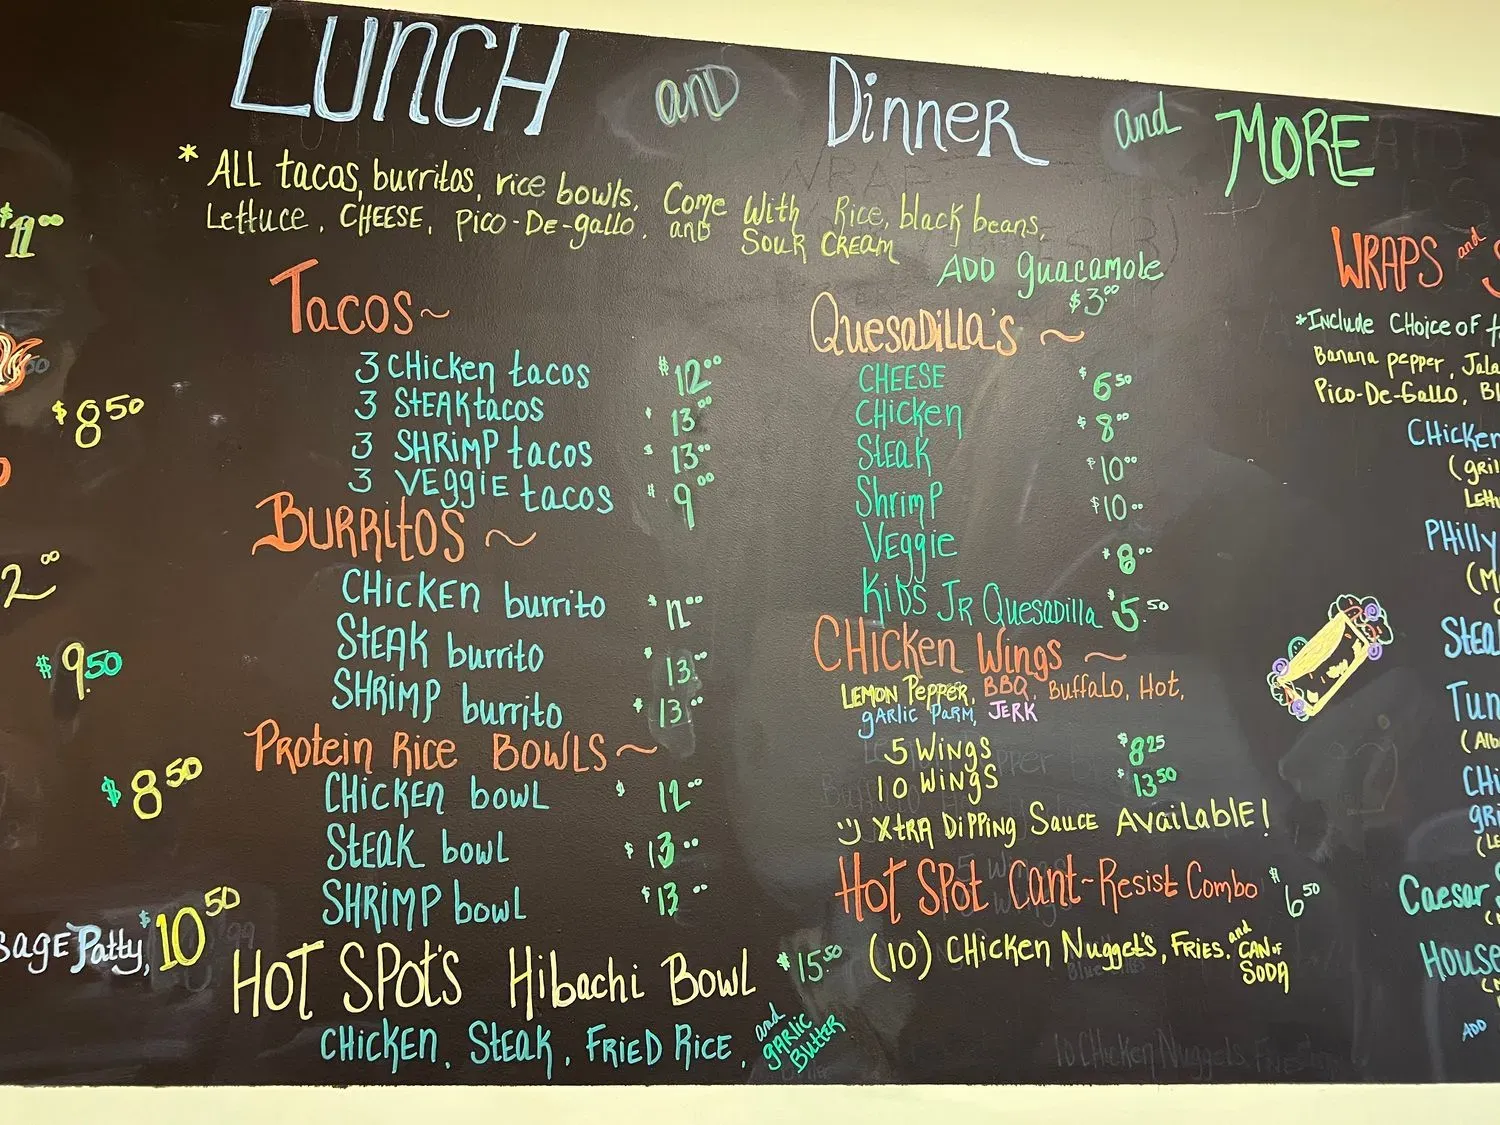 LUNCH and Dinner and MORE
* ALL tacos, burritos, rice bowls, Come With Rice, black beans,
Lettuce, CHEESE, Pico-De-gallo, and SOUR CREAM
ADD guacamole
$3.00
Tacos~
3 CHicken tacos $12.00
3 STEAK tacos $13.00
3 SHRIMP tacos $13.00
3 VEggiE tacos $9.00
BURRitos ~
CHICKEN burrito
STEAK burrito $13.00
SHRIMP burrito $13.00
Protein Rice BOWLS ~
CHICKEN bowl $12.00
STEAK bowl $13.00
SHRIMP bowl $13.00
HOT SPOt's Hibachi Bowl $15.50
CHICKEN, STEAK, FRIED RICE, and gARLIC BUTTER
QuesaDilla's ~
CHEESE $6.50
CHicken $8.00
StEAK $10.00
ShrimP $10.00
Veggie $8.00
KiDS JR Quesadilla $5.50
CHICKEN Wings ~
LEMON PEPPER, BBQ, Buffalo, Hot,
gARLIC PARM, JERK
5 WINGS $8.25
10 WINGS $13.50
XtRA DIPPING SAUCE AVAILABLE!
Hot SPot Cant~Resist Combo $6.50
(10) CHICKEN NUGGET'S, FRIES, and CAN OF SODA
WRAPS and
*INCLUDE CHOICE OF
Banana pepper,
Pico-De-Gallo,
CHICKEN
PHILLY
Caesar
House
ADD
$8.50
$9.50
$8.50
Patty, $10.50